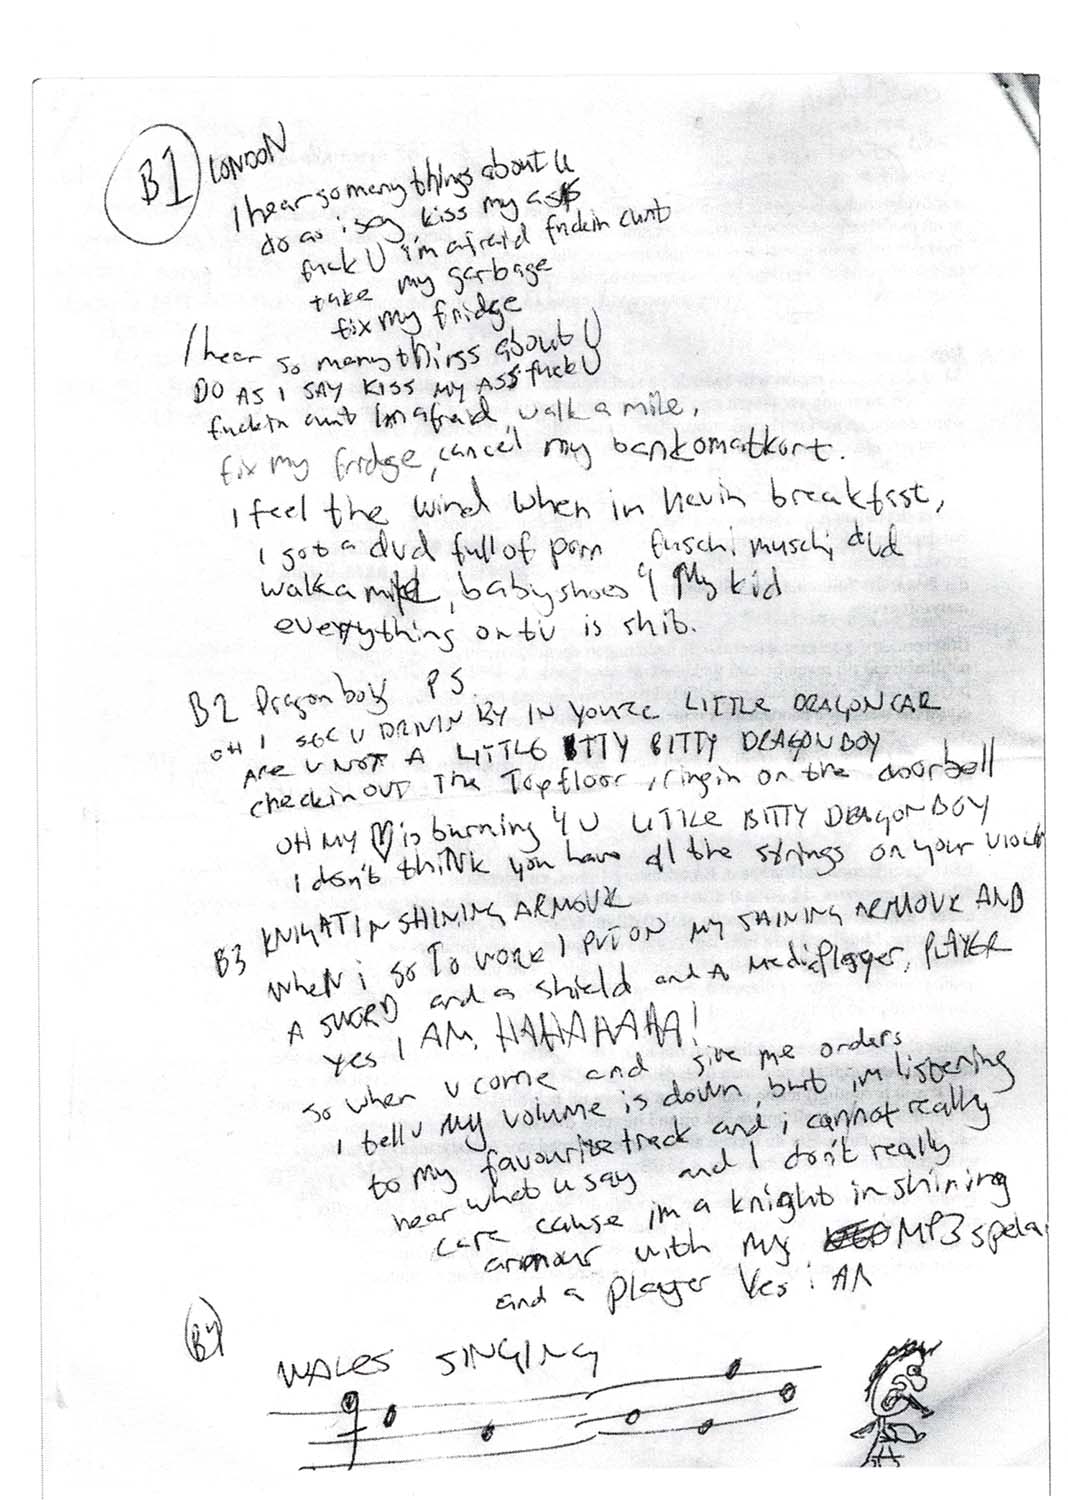 B1 LONDON
I hear so many things about U
do as i say kiss my ass
fuck U i'm afraid fuckin cunt
take my garbage
fix my fridge
I hear so many things about U
DO AS I SAY KISS MY ASS fuck U
fuckin cunt Im afraid, walk a mile,
fix my fridge, cancel my bankomatkort.
I feel the wind when in havin breakfast,
I got a dvd full of porn fuschi muschi dvd
walk a mile, babyshoes 4 My kid
everything on tv is shit.
B2 Dragonboy PS.
OH I SEE U DRIVIN BY IN YOURE LITTLE DRAGONCAR
ARE U NOT A LITTLE ITTY BITTY DRAGONBOY
checkin OUT The Topfloor, ringin on the doorbell
OH MY ♡ is burning 4 U LITTLE BITTY DRAGONBOY
I don't thiNK you have all the strings on your VIOLIN
B3 KNIGHT IN SHINING ARMOUR
WheN i go To WORK I PUT ON MY SHINING ARMOUR AND
A SWORD and a shield and A Mediaplayer, PLAYER
yes I AM, HAHAHAHA!
so when u come and give me orders
I tell u My volume is down, but im listening
to my favourite track and i cannot really
hear what u say and I don't really
care cause im a knight in shining
armour with my MP3 spela
and a player Yes i AM
B4
WALES SINGING